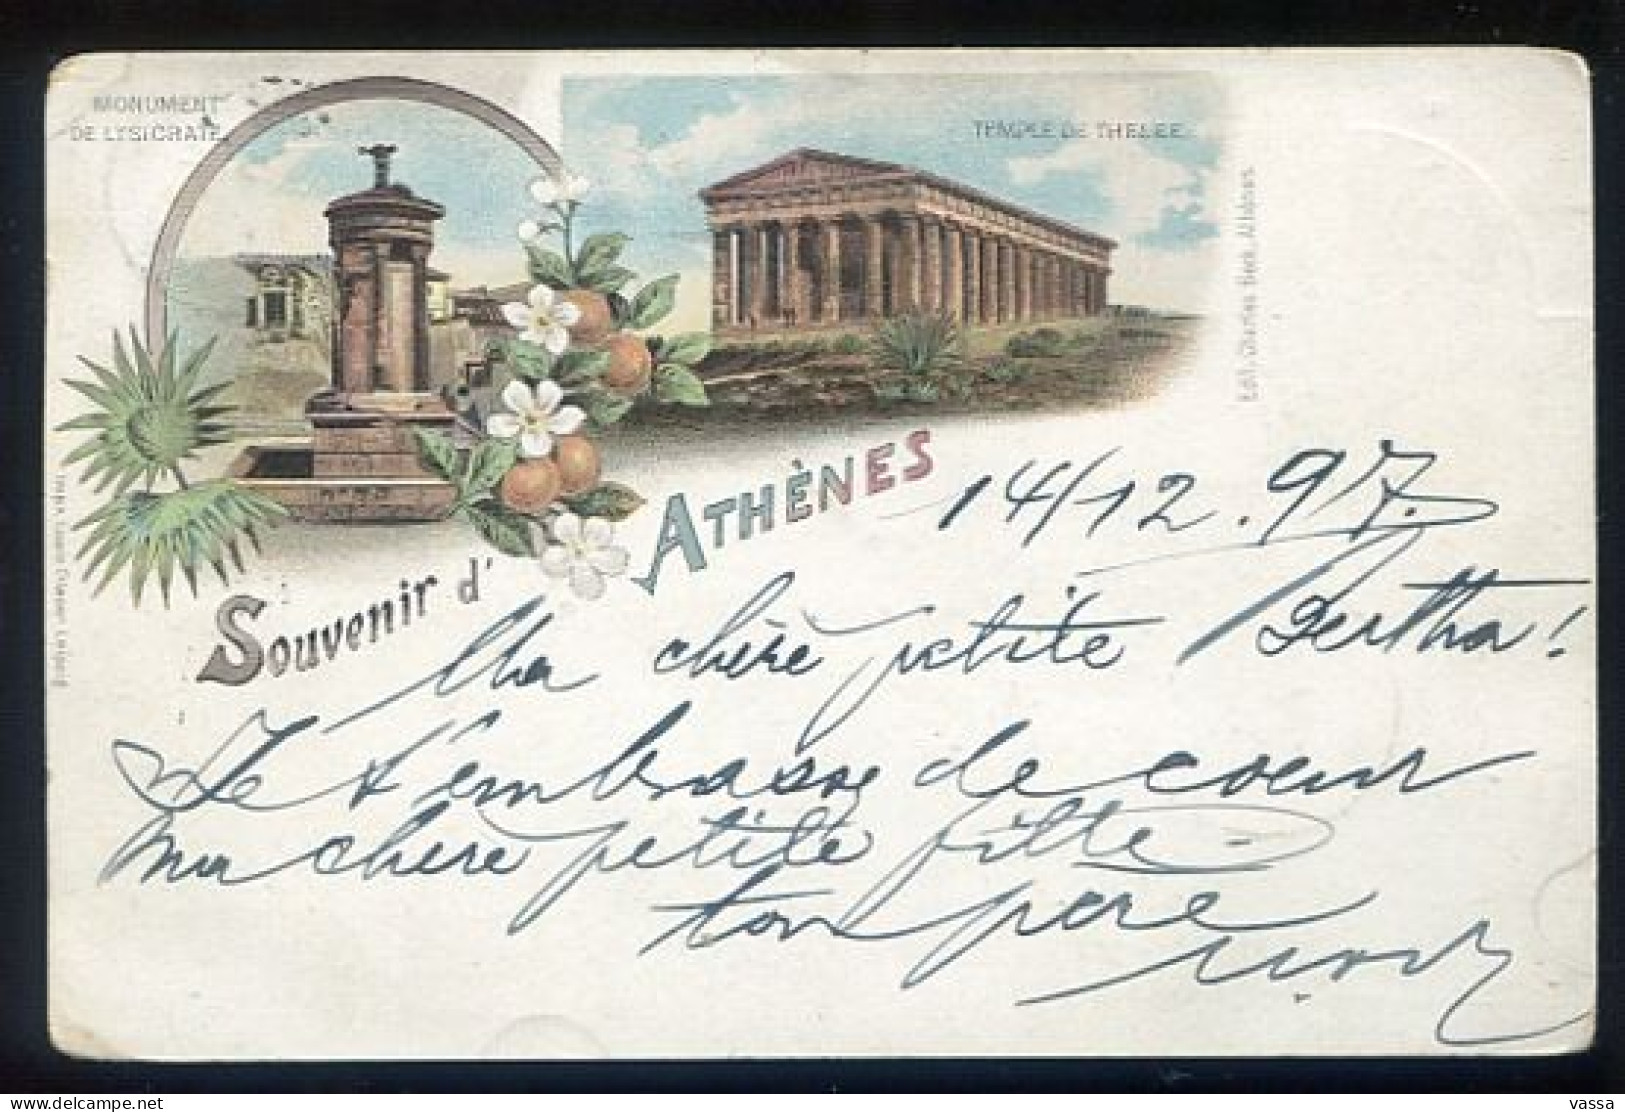 MONUMENT
DE LYSICRATE
TEMPLE DE THESEE
Edit. Charles Beck, Athènes.
Souvenir d'ATHÈNES
14/12.97.
Ma chère petite Bertha!
Je t'embrasse de coeur
ma chère petite fille
ton père
delcampe.net
vassa